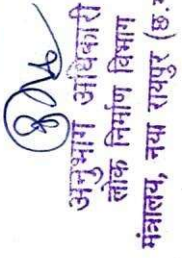 अनुभाग अधिकारी
लोक निर्माण विभाग
मंत्रालय, नया रायपुर (छ.